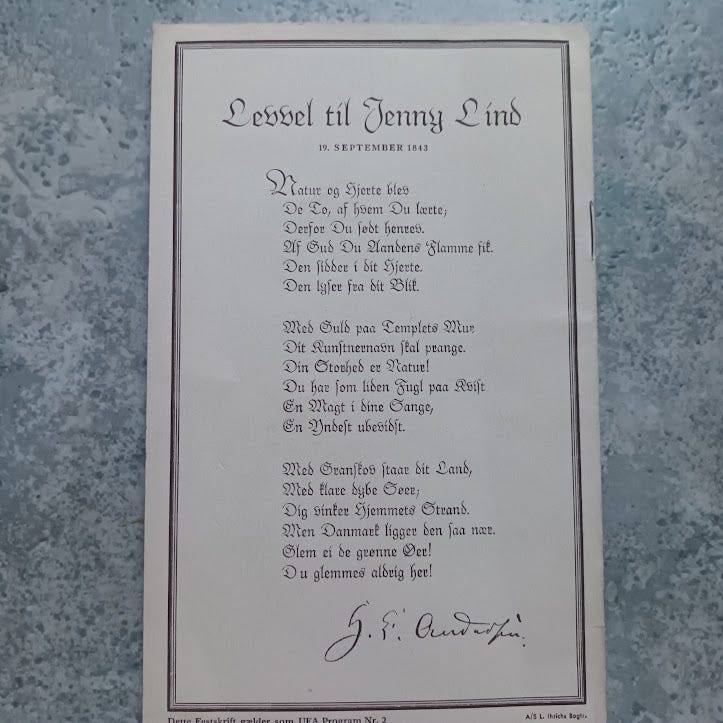 Levvel til Jenny Lind
19. SEPTEMBER 1843
Natur og Hjerte blev
De To, af hvem Du lærte;
Derfor Du sødt henrev.
Af Gud Du Aandens Flamme fik.
Den sidder i dit Hjerte.
Den lyser fra dit Blik.
Med Guld paa Templets Mur
Dit Kunstnernavn skal prange.
Din Storhed er Natur!
Du har som liden Fugl paa Kvist
En Magt i dine Sange,
En Yndest ubevidst.
Med Granskov staar dit Land,
Med klare dybe Søer;
Dig vinker Hjemmets Strand.
Men Danmark ligger den saa nær.
Glem ei de grønne Øer!
Du glemmes aldrig her!
H. C. Andersen.
Dette Festskrift gælder som UFA Program Nr. 2
A/S L. Ihrichs Bogtr.